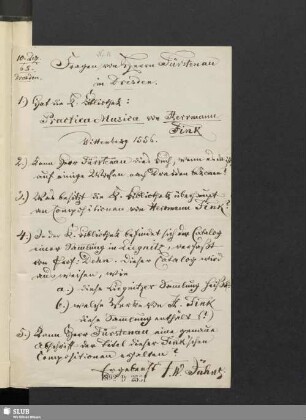 Fragen von Herrn Fürstenau
in Dresden.
1.) Hat die K. Bibliothek:
Practica Musica von Herrmann
Fink
Wittenberg 1556.
2.) Kann Herr Fürstenau dies Buch, wenn
auf einige Wochen nach Dresden bekommen?
3.) Was besitzt die K. Bibliothek überhaupt
an Compositionen von Herrmann Fink?
4.) In der K. Bibliothek befindet sich der Catalog
einer Sammlung in Liegnitz, verfasst
von Prof. Dehn. Dieser Catalog wird
ausweisen, wie
a.) diese Liegnitzer Sammlung heißt
b.) welche Werke von H. Fink
diese Sammlung enthält(?)
5.) Kann Herr Fürstenau eine genaue
Abschrift der Titel dieser Fink'schen
Compositionen erhalten?
SLUB
Wir führen Wissen.